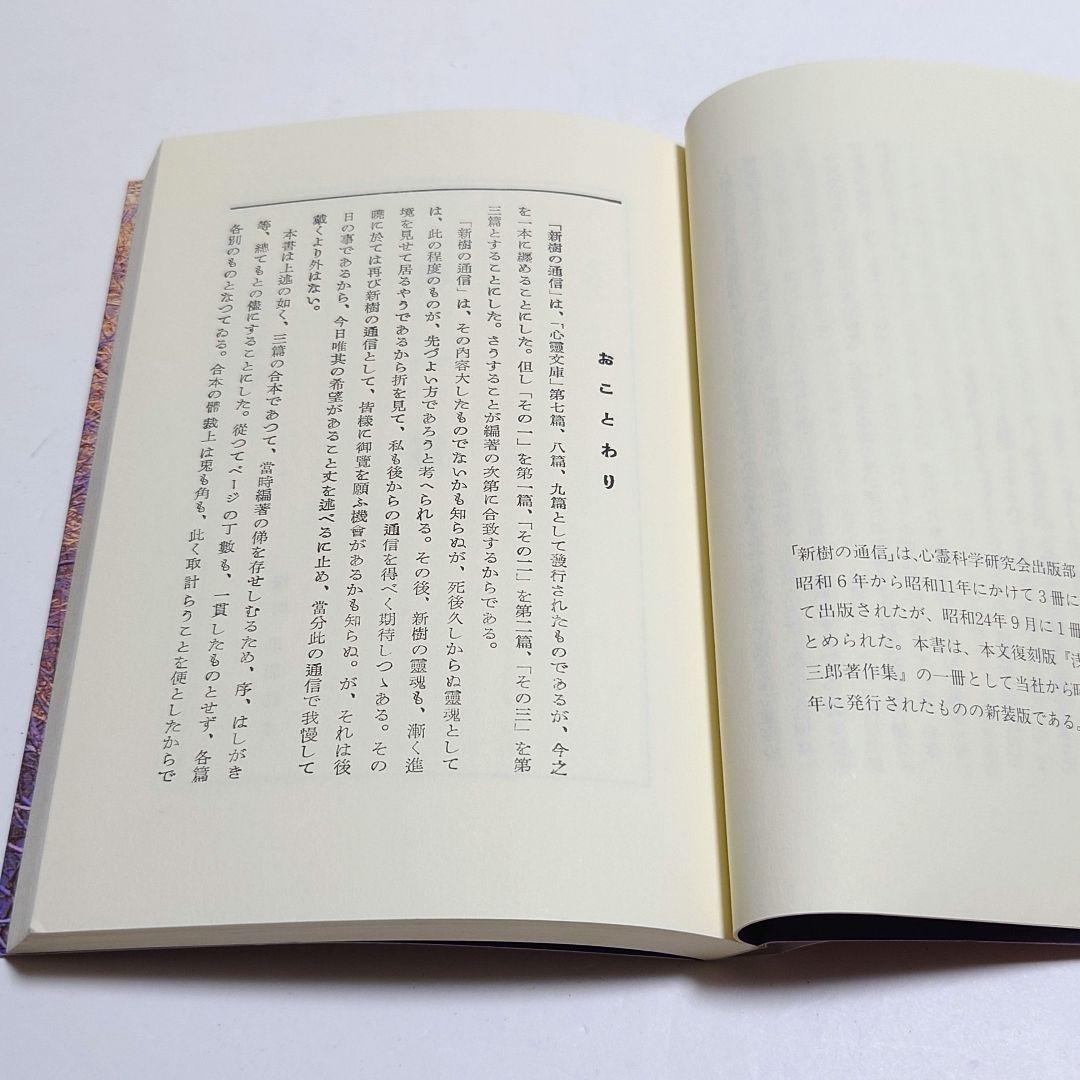 「新樹の通信」は、心霊科学研究会出版部
昭和6年から昭和11年にかけて3冊に
て出版されたが、昭和24年9月に1冊
とめられた。本書は、本文復刻版『浅
三郎著作集』の一冊として当社から昭
年に発行されたものの新装版である。
おことわり
「新樹の通信」は、「心靈文庫」第七篇、八篇、九篇として發行されたものであるが、今之
を一本に纒めることにした。但し「その一」を第一篇、「その二」を第二篇、「その三」を第
三篇とすることにした。さうすることが編著の次第に合致するからである。
「新樹の通信」は、その內容大したものでないかも知らぬが、死後久しからぬ靈魂として
は、此の程度のものが、先づよい方であろうと考へられる。その後、新樹の靈魂も、漸く進
境を見せて居るやうであるから折を見て、私も後からの通信を得べく期待しつゝある。その
曉に於ては再び新樹の通信として、皆樣に御覽を願ふ機會があるかも知らぬ。が、それは後
日の事であるから、今日唯其の希望があること丈を述べるに止め、當分此の通信で我慢して
戴くより外はない。
本書は上述の如く、三篇の合本であつて、當時編著の俤を存せしむるため、序、はしがき
等、總てもとの儘にすることにした。從つてページの丁數も、一貫したものとせず、各篇
各別のものとなつてゐる。合本の體裁上は兎も角も、此く取計らうことを便としたからで